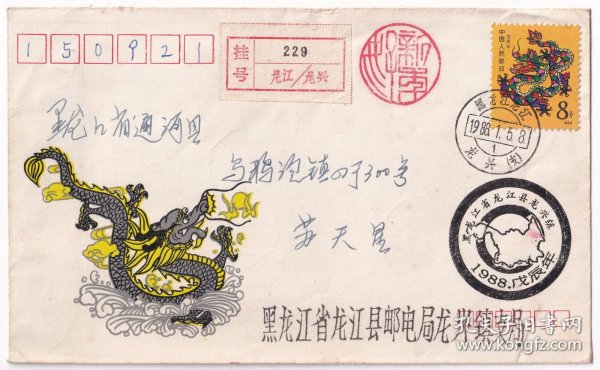 150921
挂号
229
龙江/龙兴
中国人民邮政
8分
黑龙江龙江
1988.1.5.8
1
龙兴(支)
黑龙江省通河县
乌鸦泡镇
苏天星
黑龙江省龙江县龙兴镇
1988.戊辰年
黑龙江省龙江县邮电局龙兴镇支局
孔夫子旧书网
www.kongfz.com